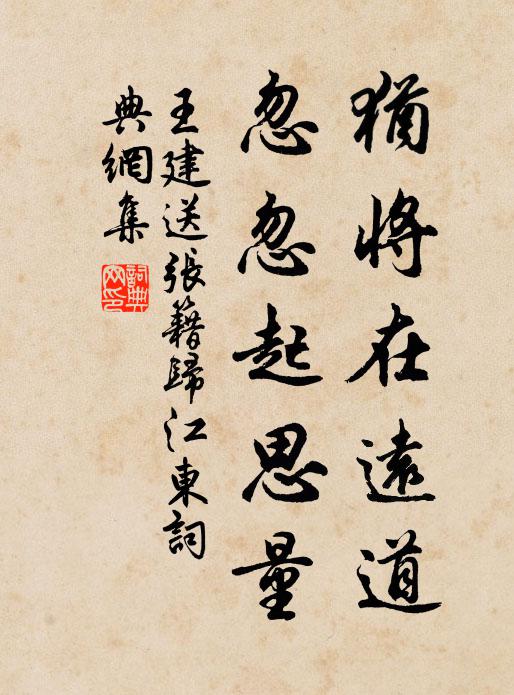 猶將在遠道
忽忽起思量
王建送張籍歸江東詞
典網集
詞典
网印